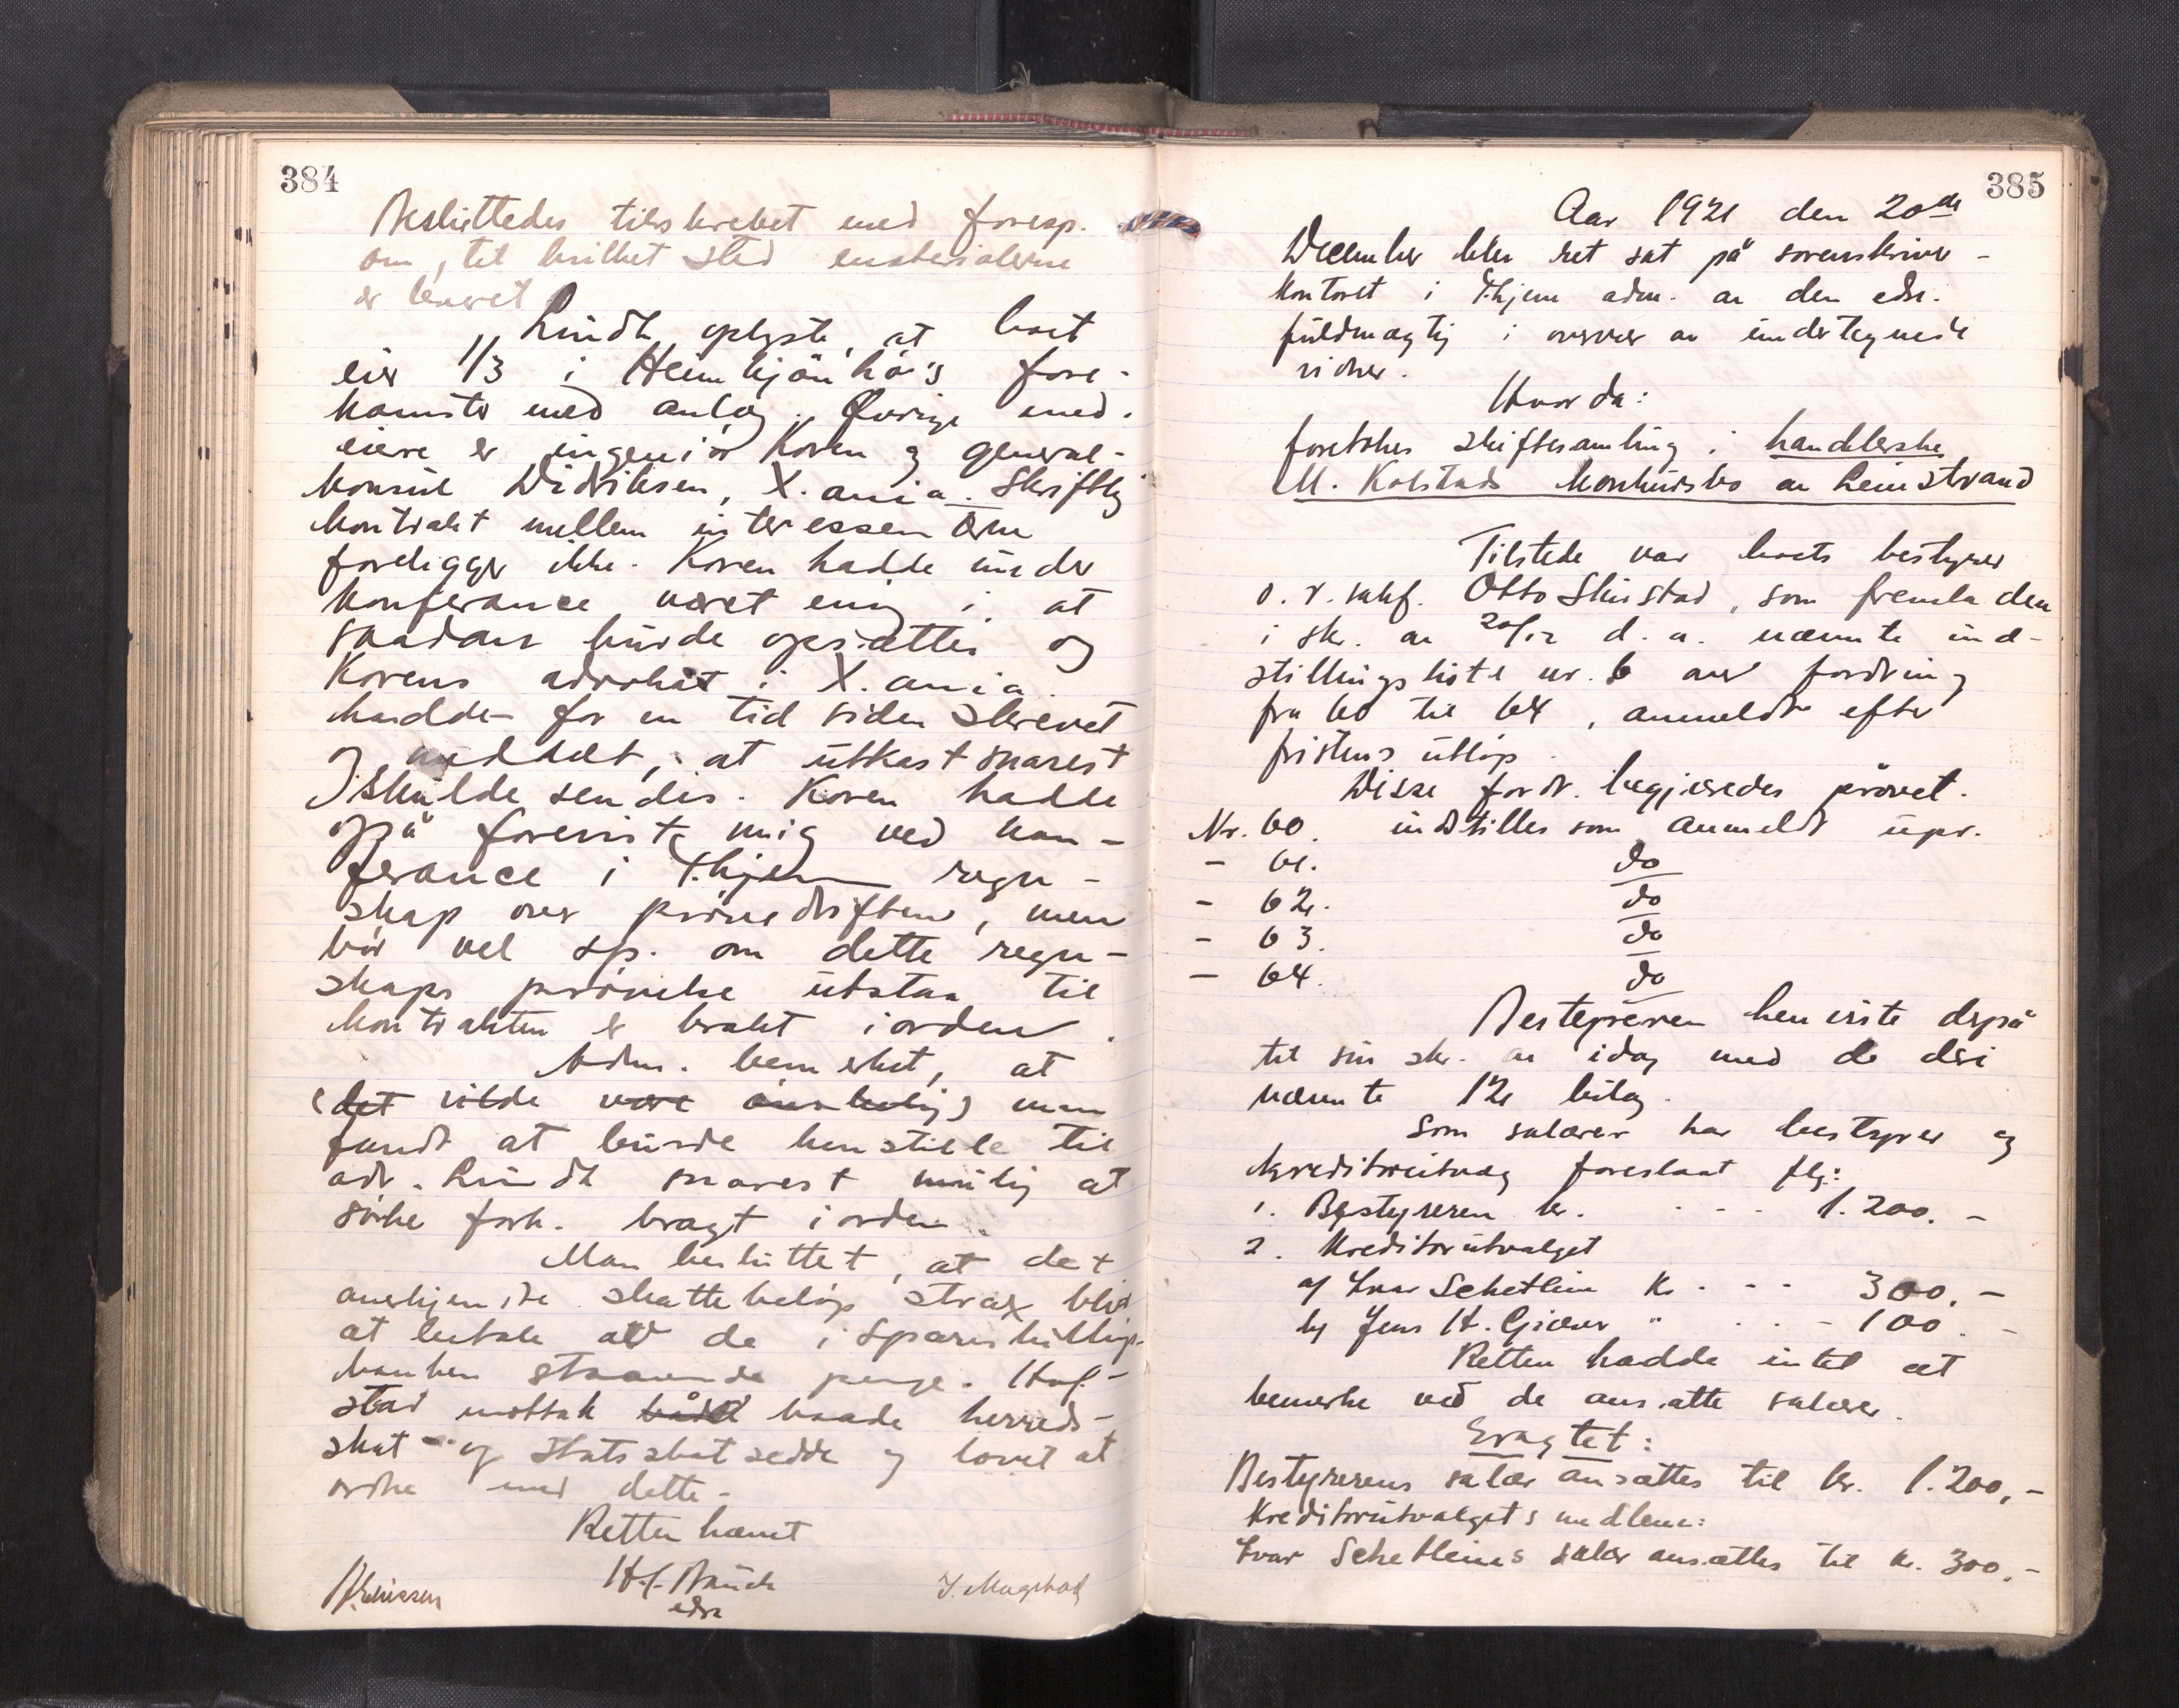 384
Besluttedes tilskrevet med foresp.
om, til hvilket sted materialerne
er leveret.
Lindt oplyste, at boet
eier 1/3 i Heimtjönhö's fore-
komster med anlæg. Øvrige med-
eiere er ingeniör Koren og general-
konsul Didriksen, X.ania. Skriftlig
kontrakt mellem interessenterne
foreligger ikke. Koren hadde under
konferance været enig i at
saadan burde opsættes og
Korens advokat i X.ania
hadde for en tid siden skrevet
og meddelt, at utkast snarest
skulde sendes. Koren hadde
også forevist mig ved kon-
ferance i T.hjem regn-
skap over prövedriften, men
bör vel sp. om dette regn-
skaps prövelse utstaa til
kontrakten er bragt iorden.
Adm. bemerket, at
(det vilde være önskelig) man
fandt at burde henstille til
adv. Lindt snarest mulig at
söke forh. bragt iorden.
Man besluttet, at det
anerkjendte skattebelöp strax blir
at betale av de i Spareskillings-
banken staaende penge. Hof-
stad mottok både baade herreds-
skat og statsskatsedde og lovet at
ordne med dette.
Retten hævet
H.J. Bauck
eds.
385
Aar 1921 den 20de
December blev ret sat på sorenskriver-
kontoret i T.hjem adm. av den eds.
fuldmægtig i overvær av undertegnede
vidner.
Hvorda:
foretokes skiftesamling i handlerske
M. Kolstads konkursbo av Leinstrand
Tilstede var boets bestyrer
o.r.sakf. Otto Skirstad, som fremla den
i skr. av 20/12 d.a. nævnte ind-
stillingsliste nr. 6 over fordring
fra 60 til 64, anmeldt efter
fristens utlöp.
Disse fordr. begjæredes prövet.
Nr. 60. indstilles som anmeldt upr.
- 61. do
- 62. do
- 63. do
- 64. do
Bestyreren henviste derpå
til sin skr. av idag med de deri
nævnte 12 bilag.
Som salærer har bestyrer og
kreditorutvalg foreslaat flg:
1. Bestyreren kr. - - - 1.200.-
2. Kreditorutvalget
a) Ivar Schetlein K. - - 300.-
b) Jens H. Giæver " - - - 100.-
Retten hadde intet at
bemerke ved de ansatte salærer.
Eragtet:
Bestyrerens salær ansættes til kr. 1.200,-
Kreditorutvalgets medlem:
Ivar Schetleins salær ansættes til kr. 300.-